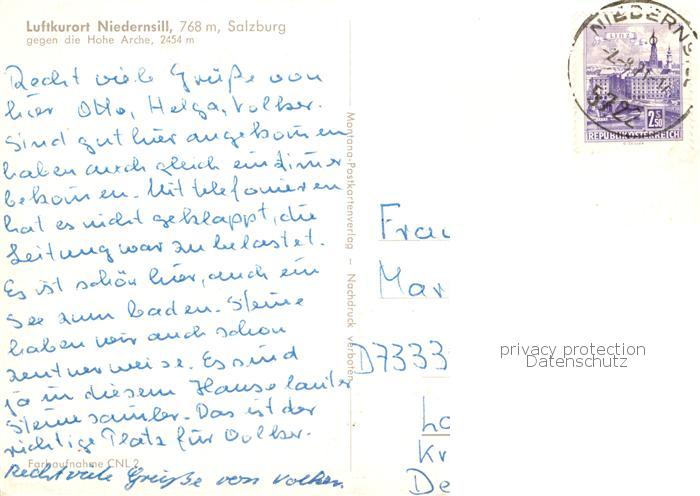 Luftkurort Niedernsill, 768 m, Salzburg
gegen die Hohe Arche, 2454 m
Recht viele Grüße von
hier Otto, Helga, Volker.
Sind gut hier angekomen
haben auch gleich ein Zimer
bekomen. Mit telefonieren
hat es nicht geklappt, die
Leitung war zu belastet.
Es ist schön hier, auch ein
See zum baden. Steine
haben wir auch schon
zentnerweise. Es sind
ja in diesem Hause lauter
Steinesamler. Das ist der
richtige Platz für Volker.
Farbaufnahme CNL 2
Recht viele Grüße von Volker
Montana-Postkartenverlag – Nachdruck verboten
NIEDERNSILL
5722
LINZ
2.50
S
REPUBLIK ÖSTERREICH
Frau
Mar
D7333
privacy protection
Datenschutz
Kr
De